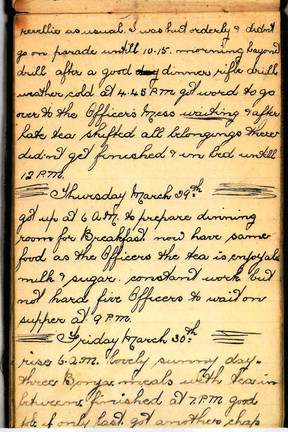 reveillie as usual. I was hut orderly & didnt
go on parade untill 10.15. morning beyond
drill after a good day dinner rifle drill
weather cold at 4.45 P.M got word to go
over to the Officers Mess waiting & after
late tea shifted all belongings there
didn't get finished & in bed untill
12 P.M.
Thursday March 29th
got up at 6 A.M. to prepare dinning
room for Breakfast. now have same
food as the Officers the tea is enjoyable
milk & sugar. constant work but
not hard five Officers to wait on
supper at 9 P.M.
Friday March 30th
rise 6. a.m. lovely sunny day.
three Bonza meals with tea in
between finished at 7. P.M good
if only last got another chap